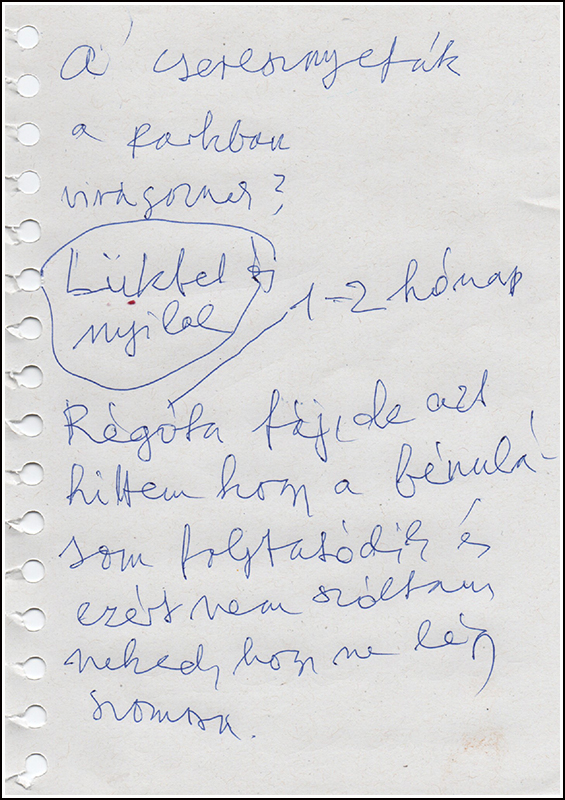 A cseresznyefák
a parkban
virágoznak?
Lüktet és
nyilal
1-2 hónap
Régóta fáj, de azt
hittem hogy a bénulá-
som folytatódik és
ezért nem szóltam
neked, hogy ne légy
szomorú.